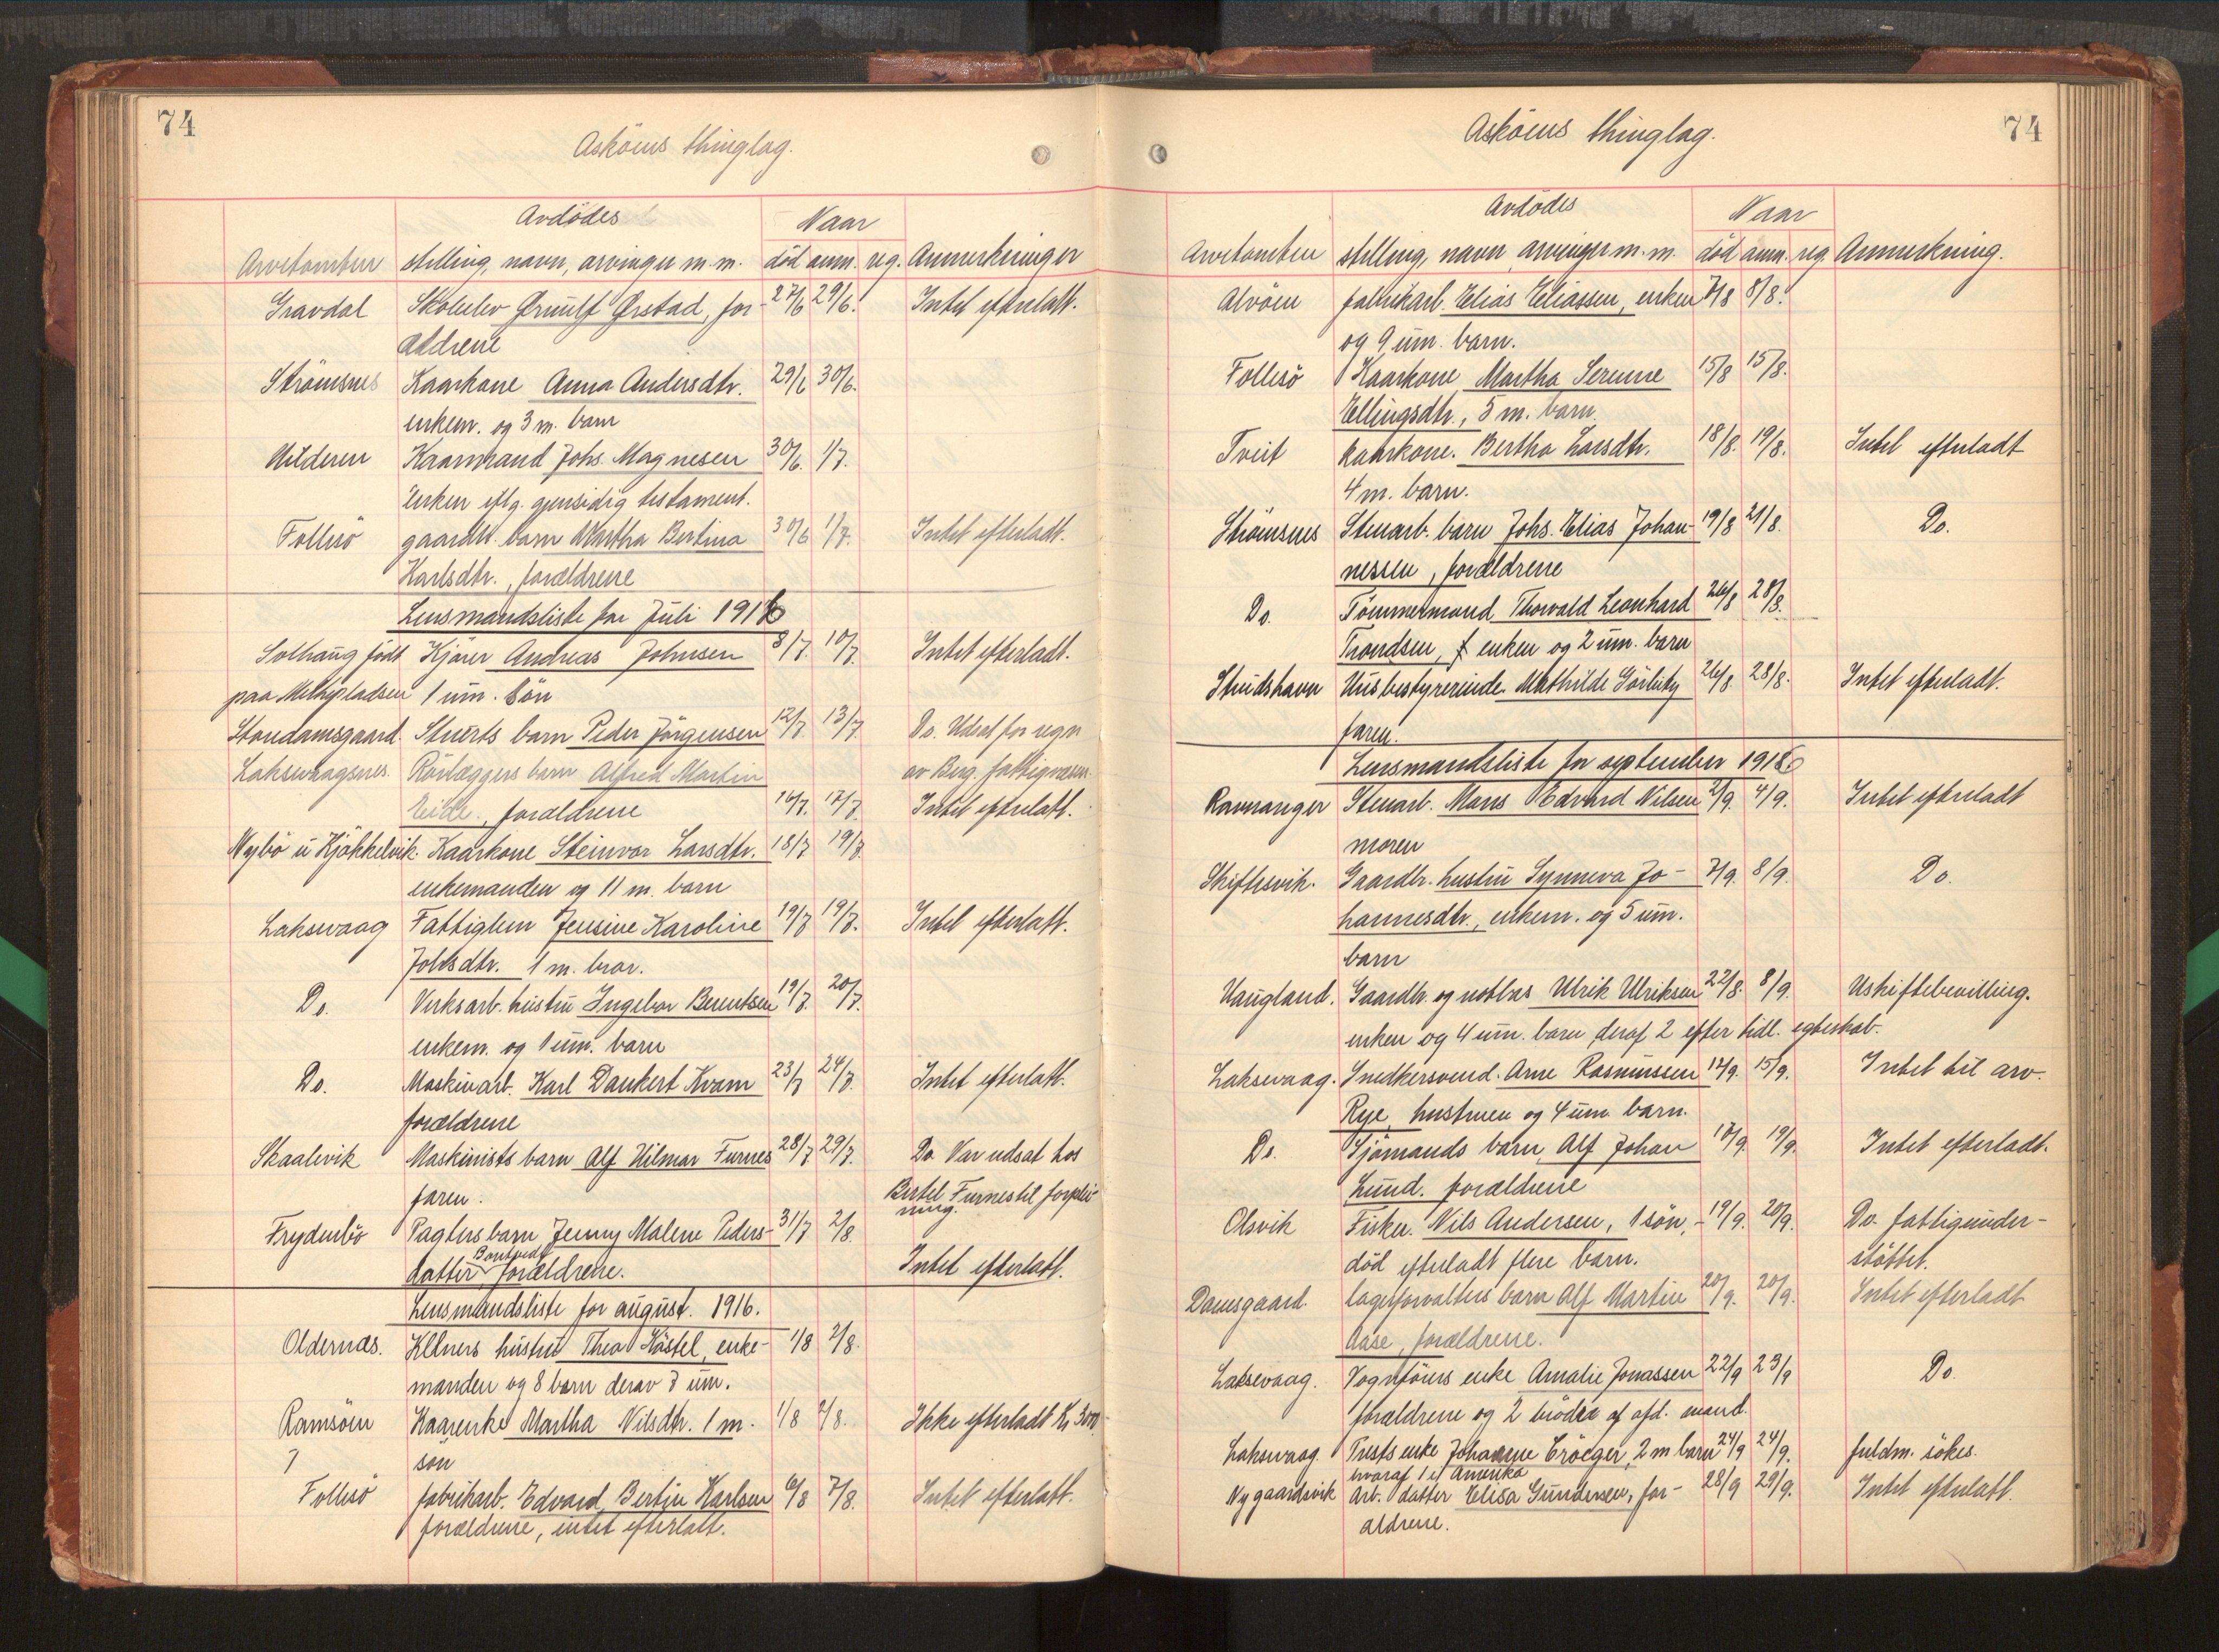 74
Asköens thinglag.
Avdödes
Naar
Arvetomten stilling, navn, arvinger m.m. död anm. reg. Anmerkninger
Gravdal Skoleelev Ørnulf Ørstad, for- 27/6 29/6. Intet efterlatt.
ældrene
Strömsnes Kaarkone Anna Andersdtr. 29/6 30/6.
enkem. og 3 m. barn
Hilderen Kaarmand Johs. Magnesen 30/6. 1/7.
Enken eftg. gjensidig testament.
Follesö gaardbr. barn Martha Bertina 30/6 1/7. Intet efterlatt.
Karlsdtr., forældrene
Lensmandsliste for Juli 1916
Solhaug födt Kjörer Andreas Johnsen 8/7. 10/7. Intet efterladt.
paa Methpladsen 1 um. Sön
Stordamsgaard. Stuerts barn Peder Jörgensen 12/7. 13/7. Do. Udsat for regn
Laksevaagsnes. Rörlæggers barn Alfred Martin av Berg. fattigvæsen.
Eide, forældrene 16/7. 17/7. Intet efterlatt.
Nybö u Kjökkelvik. Kaarkone Steinvor Larsdtr. 18/7 19/7.
enkemanden og 11 m. barn
Laksevaag Fattiglem Jensine Karoline 19/7 19/7. Intet efterlatt.
Johsdtr. 1 m. bror.
Do. Verksarb. hustru Ingebor Berentsen 19/7. 20/7.
enkem. og 1 um. barn
Do. Maskinarb. Karl Dankert Kvam 23/7 24/7. Intet efterlatt.
forældrene
Skaalevik Maskinists barn Alf Hilmar Furnes 28/7 29/7. Do. Var udsat hos
faren. Bertel Furnes til forplei-
ning.
Frydenbö Pagters barn Jenny Malene Peders- 31/7 2/8.
datter Bontvedt forældrene. Intet efterlatt.
Lensmandsliste for august. 1916.
Oldernæs. Kllners hustru Thea Köstel, enke- 1/8 2/8.
manden og 8 barn derav 7 um.
Ramsöen Kaarenke Martha Nilsdtr. 1 m. 1/8 2/8. Ikke efterladt Kr 3000
? sön
Follesö fabrikarb. Edvard Bertin Karlsen 6/8 7/8. Intet efterlatt.
forældrene, intet efterlatt.
74
Asköens thinglag.
Avdödes
Naar
Arvetomten stilling, navn arvinger m.m. död anm. reg. Anmerkning.
Alvöen fabrikarb. Elias Eliassen, enken 7/8 8/8.
og 9 um. barn.
Follesö Kaarkone Martha Serine 15/8 15/8.
Ellingsdtr., 5 m. barn.
Tveit kaarkone. Bertha Larsdtr. 18/8. 19/8. Intet efterladt
4 m. barn.
Strömsnes Stenarb. barn Johs. Elias Johan- 19/8 21/8. Do.
nessen, forældrene
Do. Tömmermand Thorvald Leonhard 26/8 28/8.
Trondsen, enken og 2 um. barn
Strudshavn Husbestyrerinde Mathilde Görbitz 26/8. 28/8. Intet efterladt.
faren.
Lensmandsliste for september 1916
Ravnanger Stenarb. Mons Edvard Nilsen 2/9. 4/9. Intet efterladt
moren
Skiftesvik. Gaardbr. hustru Synneva Jo- 7/9. 8/9. Do.
hannesdtr., enkem. og 5 um.
barn
Haugland. Gaardbr. og notbas Ulrik Ulriksen 22/8. 8/9. Uskiftebevilling.
enken og 4 um. barn deraf 2 efter tidl. egteskab.
Laksevaag. Snedkersvend. Arne Rasmussen 12/9. 15/9. Intet til arv.
Rye, hustruen og 4 um barn.
Do. Sjömands barn Alf Johan 17/9. 19/9. Intet efterladt.
Lund. forældrene
Olsvik Fisker. Nils Andersen, 1 sön, 19/9. 20/9. Do. fattigunder-
död efterladt flere barn. stöttet.
Damsgaard. lagerforvalters barn Alf Martin 20/9. 20/9. Intet efterladt
Aase, forældrene.
Laksevaag. Vognförers enke Amalie Jonassen 22/9 23/9 Do.
forældrene og 2 brödre af afd. mand.
Laksevaag. Trests enke Johanne Cröeger, 2 m barn 24/9 24/9. fuldm. sökes.
hvoraf 1 i Amerika
Nygaardsvik Arb. datter Elisa Gundersen, for- 28/9 29/9. Intet efterlatt.
ældrene.